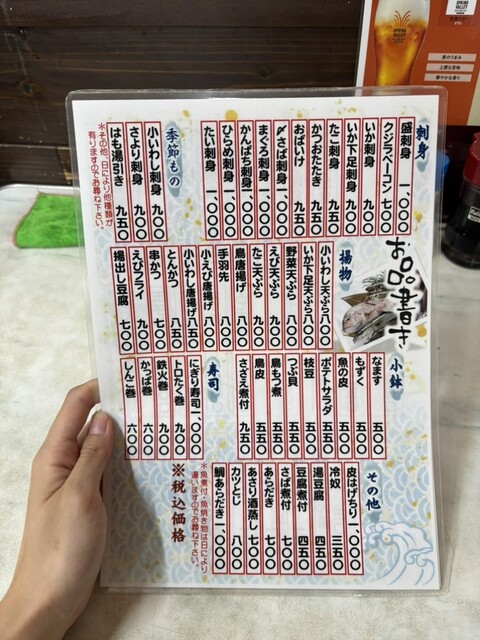 刺身
盛刺身 一、〇〇〇
クジラベーコン 七〇〇
いか刺身 九五〇
いか下足刺身 九五〇
たこ刺身 九五〇
かつおたたき 九五〇
おばいけ 七五〇
〆さば刺身 九〇〇
まぐろ刺身 一、〇〇〇
かんぱち刺身 一、〇〇〇
ひらめ刺身 一、〇〇〇
たい刺身 一、〇〇〇
季節もの
小いわし刺身 九〇〇
さより刺身 九〇〇
はも湯引き 九五〇
※その他、日により他種類が
有りますのでお尋ね下さい。
お品書き
揚物
小いわし天ぷら 八〇〇
いか下足天ぷら 八〇〇
野菜天ぷら 八〇〇
えび天ぷら 九五〇
たこ天ぷら 九〇〇
鳥唐揚げ 八〇〇
手羽先 八〇〇
小えび唐揚げ 八〇〇
小いわし唐揚げ 八五〇
とんかつ 八五〇
串かつ 七〇〇
えびフライ 九〇〇
揚出し豆腐 七〇〇
小鉢
なます 五〇〇
もずく 五五〇
魚の皮 五〇〇
ポテトサラダ 五五〇
枝豆 五五〇
つぶ貝 五五〇
鳥もつ煮 五五〇
鳥皮 五五〇
さざえ煮付 九五〇
寿司
にぎり寿司 一、一〇〇
トロたく巻 九〇〇
鉄火巻 九〇〇
かっぱ巻 六〇〇
しんこ巻 六〇〇
その他
皮はげちり 一、〇〇〇
冷奴 三五〇
湯豆腐 四五〇
豆腐煮付 四五〇
さば煮付 七〇〇
あらだき 七〇〇
あさり酒蒸し 七〇〇
カツとじ 八〇〇
鯛あらだき 一、〇〇〇
※魚煮付・魚焼き物は日により
違いますのでお尋ね下さい。
※税込価格
SPRING VALLEY